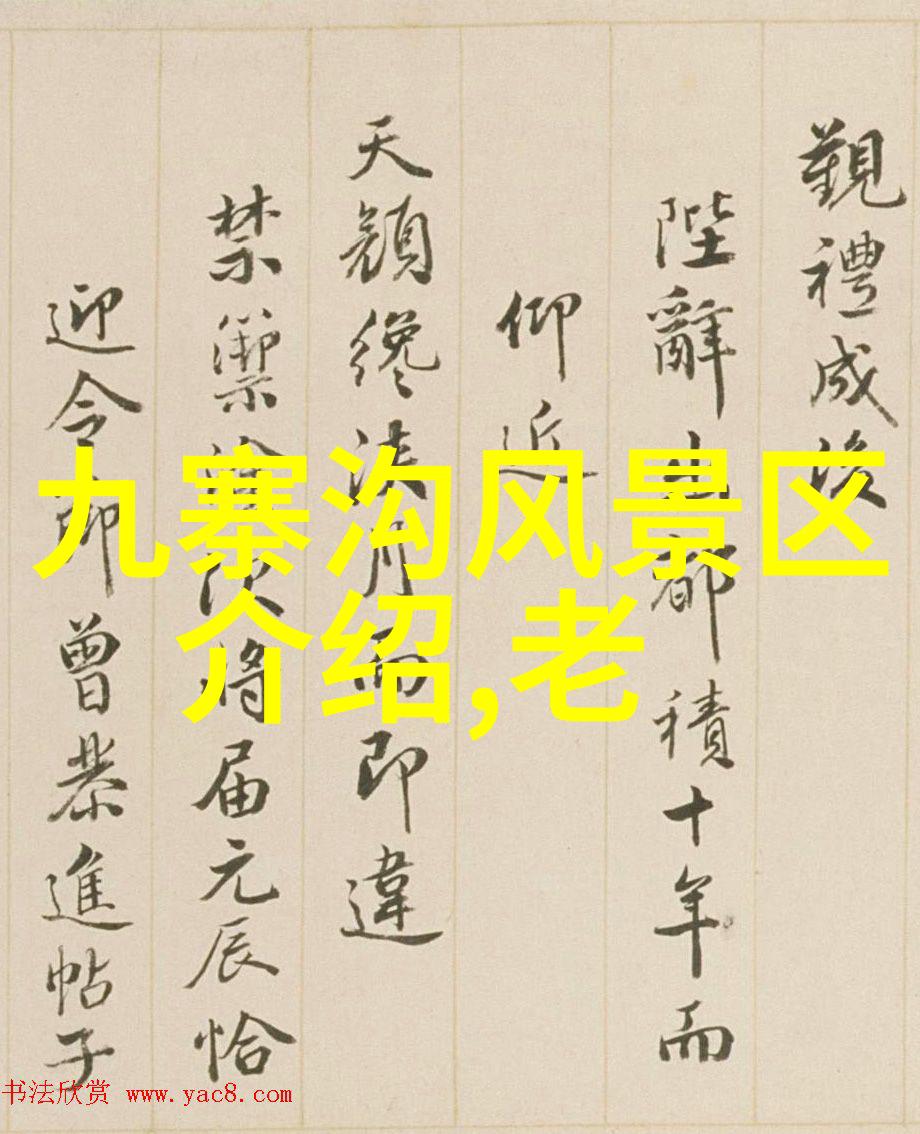 覲禮成後
陛辭出都積十年而
仰近
天顏纔浹月而即違
禁籞次將屆元辰恰
迎令節曾恭進帖子
九寨沟风景区
介绍,老
书法欣赏 www.yac8.com